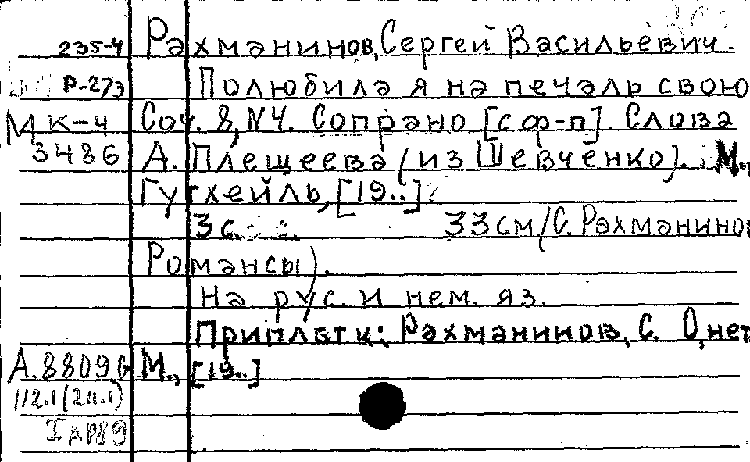 235-4 Рахманинов, Сергей Васильевич.
Р-27э Полюбила я на печаль свою
МК-4 Соч. 8, №4. Сопрано [с ф-п]. Слова
3486 А. Плещеева (из Шевченко). М.,
Гутхейль, [19..]
3 с. 33 см (С. Рахманинов
Романсы).
На рус. и нем. яз.
Приплет к: Рахманинов, С. О, нет
А.88096 М., [19..]
112.1(2п.1)